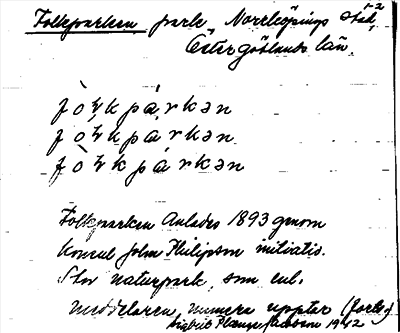 1-2
Folkparken park, Norrköpings stad,
Östergötlands län.
fòɫkpárkən
fòɫkpárkən
fòɫkpárkən
Folkparken Anlades 1893 genom
Konsul John Philipson initiativ.
Stor naturpark, som enl.
meddelaren, numera upptar (forts.)
1942